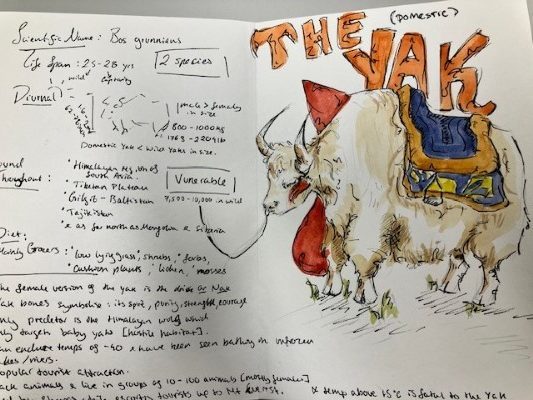 Scientific Name: Bos grunniens
(Domestic)
THE
YAK
Life Span: 25-28 yrs
wild captivity
2 species
Diurnal
males > females
in size
800-1000kg
1763-2204lb
Domestic Yak < wild Yaks in size.
ound
hroughout:
• Himalayan region of
South Asia.
• Tibetan Plateau
• Gilgit-Baltistan
• Tajikistan
• & as far north as Mongolia & Siberia
Vunerable
7,500-10,000 in wild
Diet:
Mainly Grazers: • low lying grass, shrubs, forbs,
cushion plants, lichen, mosses
he female version of the yak is the dri or Nak
ak bones symbolise: its spirit, purity, strength, courage
nly predator is the Himalayan wolf which
ly target baby yaks [hostile habitat].
an endure temps of -40 & have been seen bathing in unfrozen
kes/rivers.
opular tourist attraction.
ack animals & live in groups of 10-100 animals [mostly females]
escorts tourists up to Mt Everest.
* temp above 15°C is fatal to the Yak